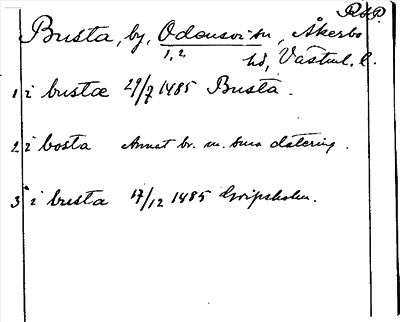 RAP.
Busta, by, Odensvi sn, Åkerbo
1, 2.
hd, Västml. l.
1 i bustæ 29/7 1485 Busta.
2 i bosta Annat br. m. sma datering.
3 i busta 17/12 1485 Gripsholm.